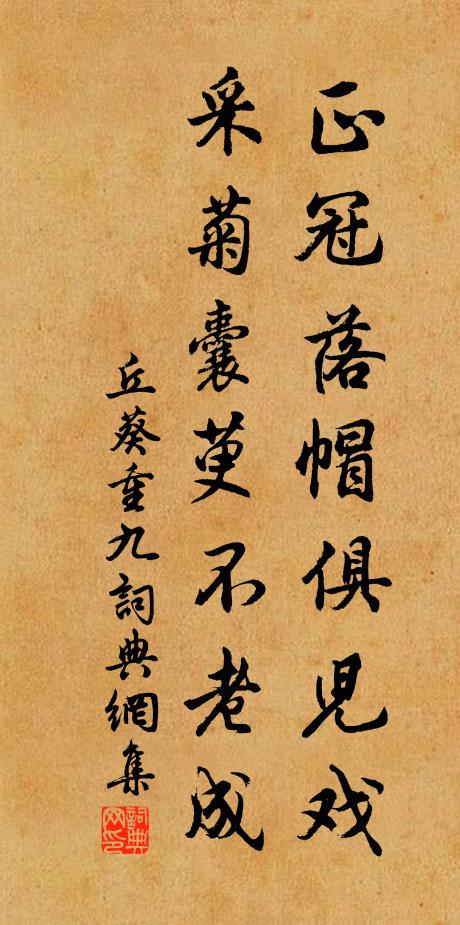 正冠落帽俱兒戏
采菊囊萸不老成
丘葵重九詞典網集
詞典网印